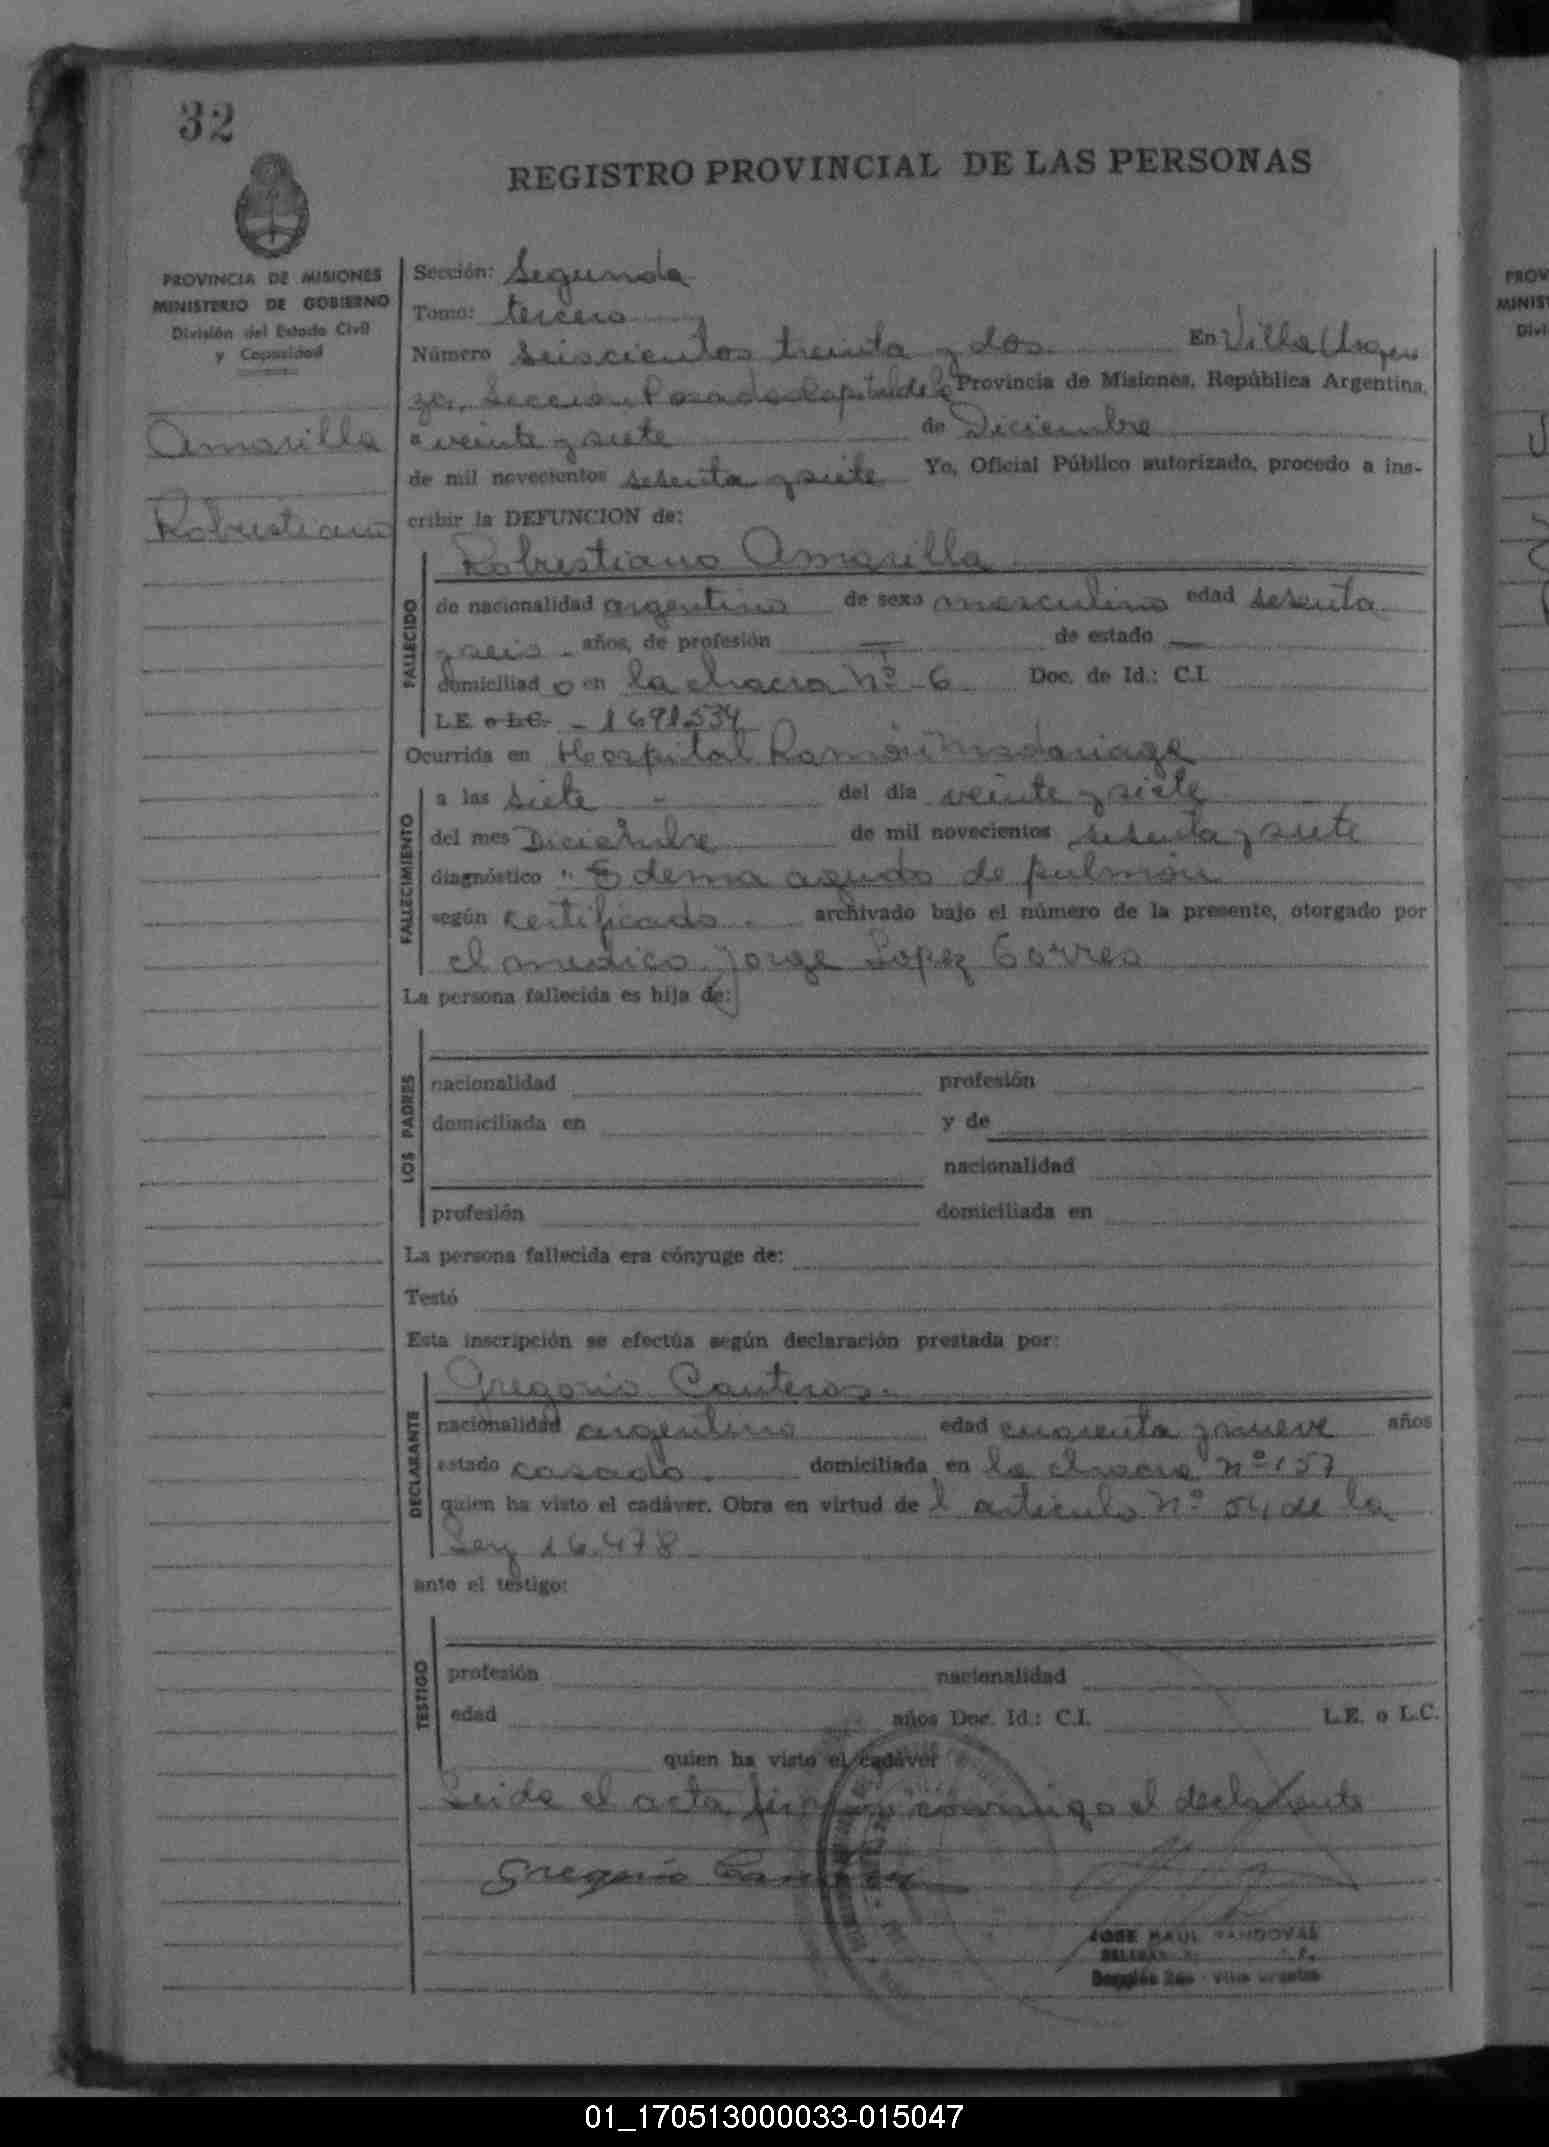 32
REGISTRO PROVINCIAL DE LAS PERSONAS
PROVINCIA DE MISIONES
MINISTERIO DE GOBIERNO
División del Estado Civil
y Capacidad
Amarilla
Robustiano
Sección: Segunda
Tomo: tercero
Número Seiscientos treinta y dos En Villa Urqui
za, Sección Posadas Capital de la Provincia de Misiones, República Argentina,
a veinte y siete de Diciembre
de mil novecientos sesenta y siete Yo, Oficial Público autorizado, procedo a ins-
cribir la DEFUNCION de:
FALLECIDO
Robustiano Amarilla
de nacionalidad argentino de sexo masculino edad sesenta
y seis años, de profesión — de estado —
domiciliado en la chacra Nº 6 Doc. de Id.: C.I.
L.E. o L.C. - 1691534
Ocurrida en Hospital Ramón Madariaga
FALLECIMIENTO
a las siete del día veinte y siete
del mes Diciembre de mil novecientos sesenta y siete
diagnóstico "Edema agudo de pulmón
según certificado archivado bajo el número de la presente, otorgado por
el medico Jorge Lopez Torres
La persona fallecida es hija de:
LOS PADRES
nacionalidad profesión
domiciliada en y de
nacionalidad
profesión domiciliada en
La persona fallecida era cónyuge de:
Testó
Esta inscripción se efectúa según declaración prestada por:
DECLARANTE
Gregorio Canteros
nacionalidad argentino edad cuarenta y nueve años
estado casado domiciliada en la chacra nº 157
quien ha visto el cadáver. Obra en virtud de l articulo Nº 54 de la
Ley 16.478
ante el testigo:
TESTIGO
profesión nacionalidad
edad años Doc. Id.: C.I. L.E. o L.C.
quien ha visto el cadáver
Leida el acta, firman conmigo el declarante
Gregorio
JOSE RAUL SANDOVAL
PROV
MINIS
Divi
01_170513000033-015047